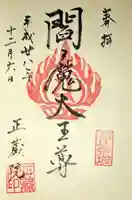 奉拝
閻魔大王尊
平成廿八年
十二月六日
正蔵院